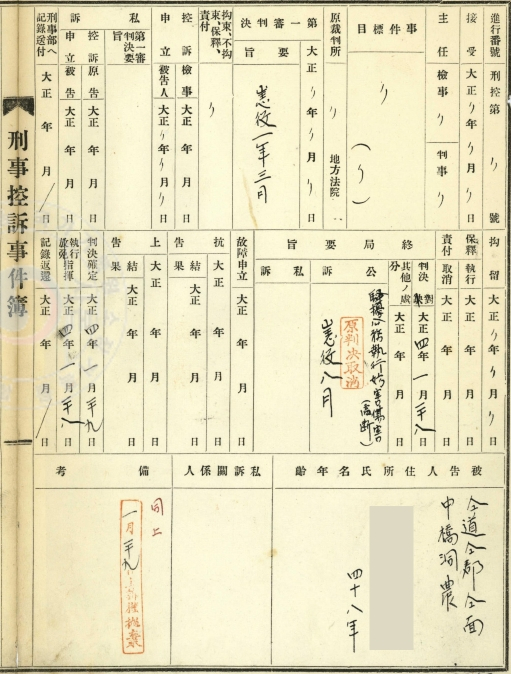 進行番號 刑控第 〃 號
接受 大正〃年〃月〃日
主任檢事 〃 判事 〃
事件標目 〃 (〃)
原裁判所 〃 地方法院
第一審判決要旨 大正〃年〃月〃日
懲役一年三月
拘束、不拘束、保釋、責付 〃
控訴申立 檢事 大正〃年〃月〃日
被告人 大正〃年〃月〃日
私訴
第一審判決要旨
控訴申立 原告 大正 年 月 日
被告 大正 年 月 日
刑事部へ記錄送付 大正 年 月 日
拘留 大正〃年〃月〃日
保釋責付 執行 大正 年 月 日
取消 大正 年 月 日
終局要旨
判決 對 大正四年一月廿八日
其他ノ處分 大正 年 月 日
公訴
騷擾公務執行妨害傷害
原判決取消
懲役八月
私訴
故障申立 大正 年 月 日
抗告 大正 年 月 日
結果
上告 大正 年 月 日
結果
判決確定 大正四年一月廿九日
執行指揮
放免 大正四年一月廿八日
記錄返還 大正 年 月 日
被告人住所氏名年齡
仝道仝郡仝面
中橋洞農
四十八年
私訴關係人
備考
同上
一月廿九
刑事控訴事件簿